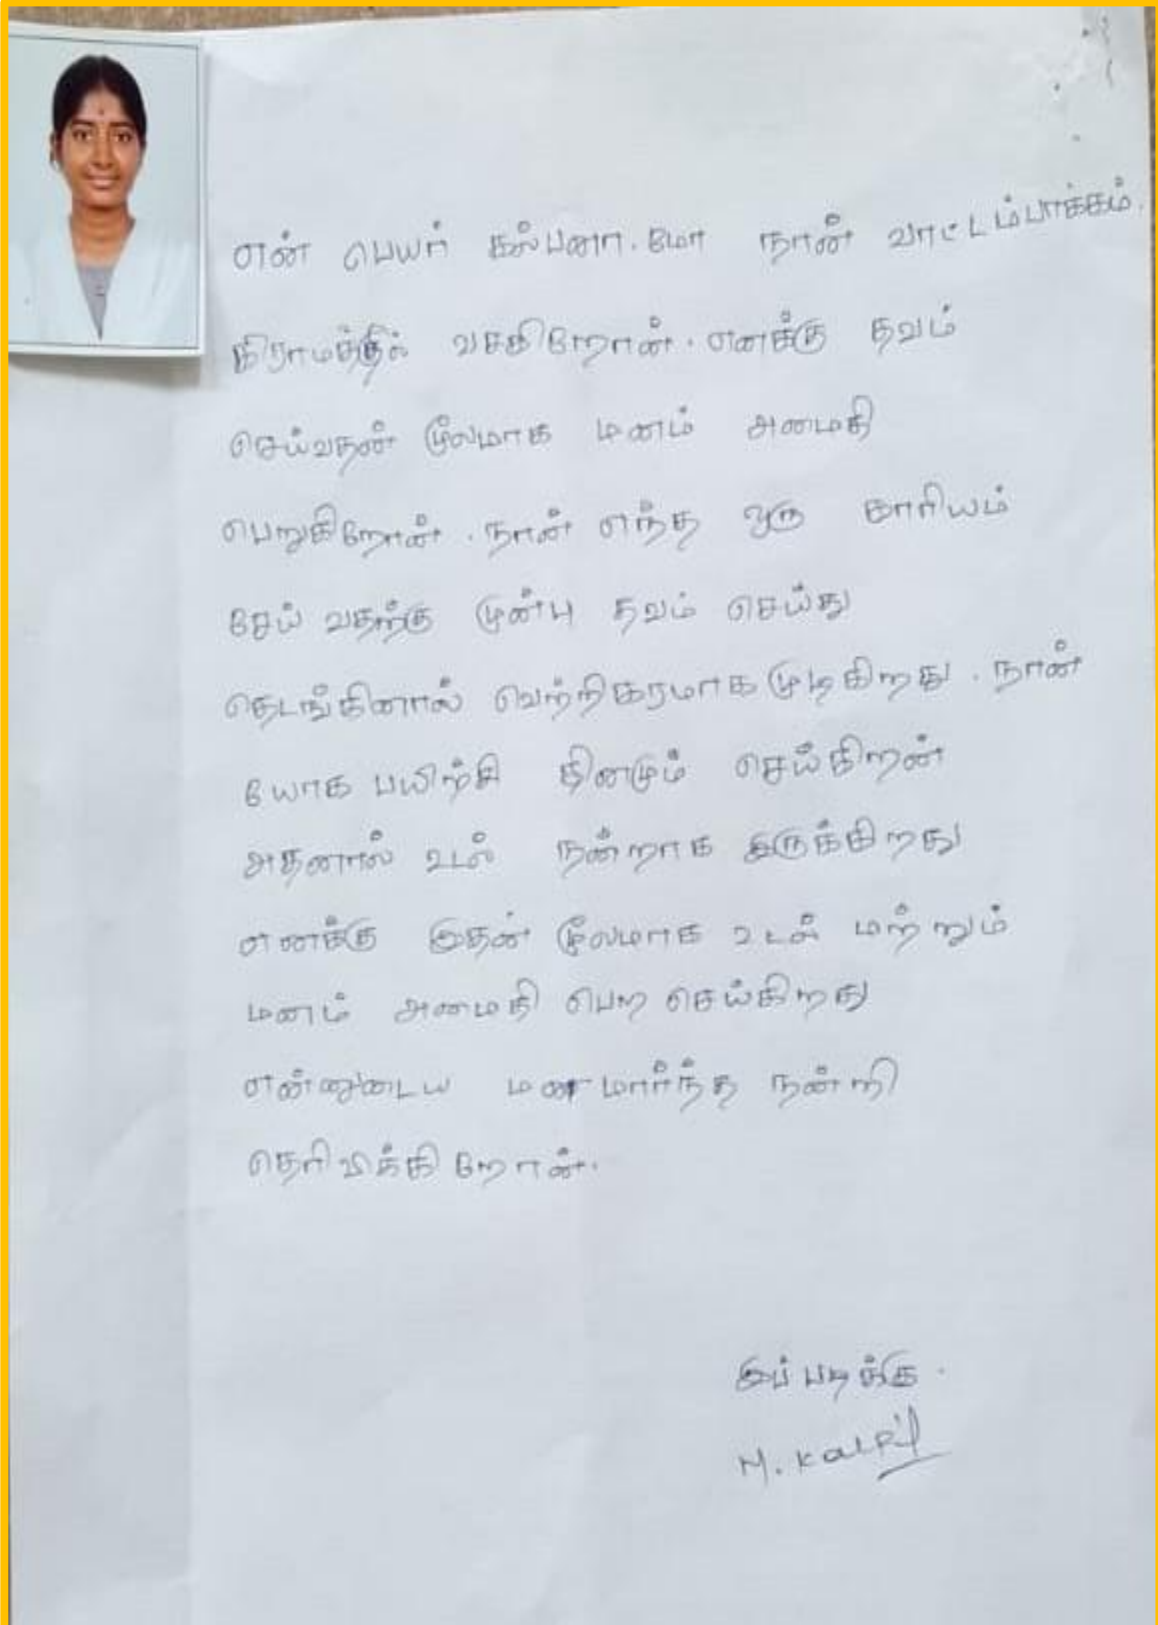 என் பெயர் கல்பனா.மோ நான் வாட்டம்பாக்கம்.
கிராமத்தில் வசகிறேன். எனக்கு தவம்
செய்வதன் மூலமாக மனம் அமைதி
பெறுகிறேன். நான் எந்த ஒரு காரியம்
சேய் வதற்கு முன்பு தவம் செய்து
தெடங்கினால் வெற்றிகரமாக முடிகிறது. நான்
யோக பயிற்சி தினமும் செய்கிறன்
அதனால் உடல் நன்றாக இருக்கிறது
எனக்கு இதன் மூலமாக உடல் மற்றும்
மனம் அமைதி பெற செய்கிறது
என்னுடைய மனமார்ந்த நன்றி
தெரிவிக்கிறேன்.
இப்படிக்கு.
M. Kalp